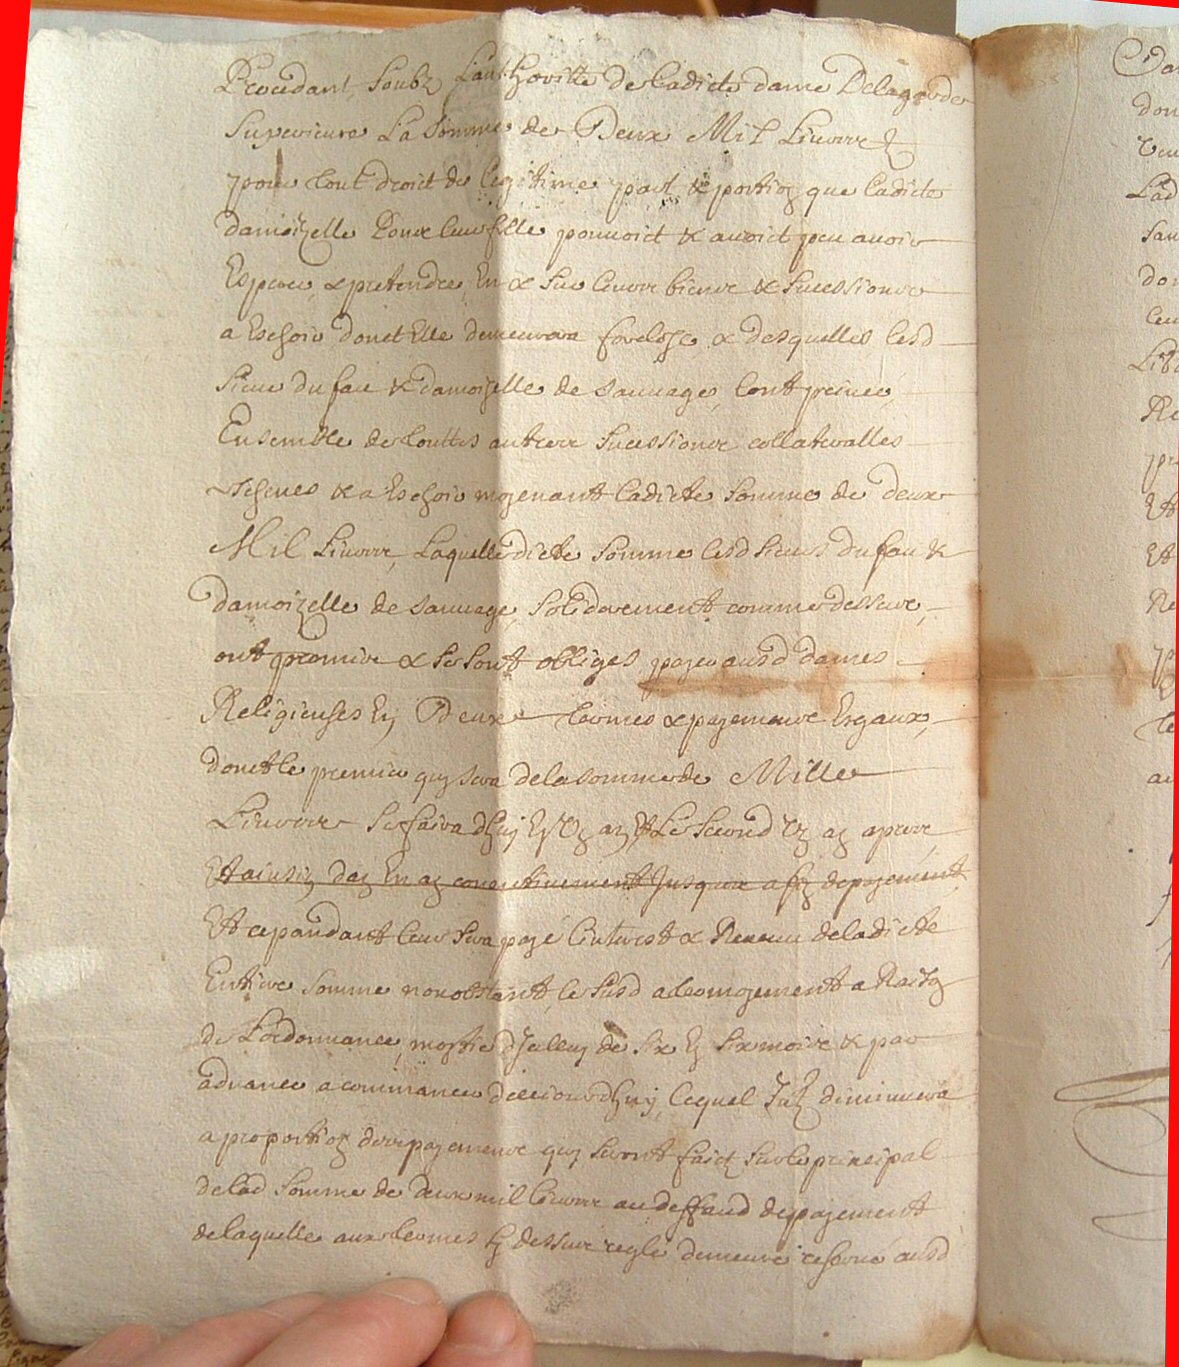 Procedant, soubz l'authoritte de ladicte dame Delagarde
superieure la somme de Deux Mil Livvres
pour tout droict de legitime part & portion que ladicte
damoizelle leur fille pouvoict & avoict peu avoir
Esperer & pretendre En & sur leurs biens & sucessions
a Eschoir donct Elle demeurera forclose & desquelles lesd
sieur dufau & damoizelle de sauvage, l'ont privée
Ensemble de touttes autres sucessions collateralles
Escheues & a Eschoir moyenant ladicte somme de deux
Mil Livres, Laquelle dicte somme lesd sieurs dufau &
damoizelle de sauvage, solidairement comme dessus,
ont promis & se sont obliges payer ausd dames
Religieuses En Deux termes & payemens Esgaux,
donct le premier quy sera de la somme de Mille
Livres se faira d'huy En Un an Et Le second Un an apres
Et ainsin d'an En an consecutivement Jusques a fin de payement
Et cepandant leur sera payé l'interest & Revenu de ladicte
Entiere somme nonobstant, le susd atermoyement a Raison
de L'ordonnance, moytié d'Iceluy de six En six mois & par
advance a commancer de ce jourd'huy, lequel Int diminuera
a proportion des payemens quy seront faicts sur le principal
de lad somme de deux mil livres au deffaud de payement
de laquelle aux termes cy dessus reglé demeure reservé ausd